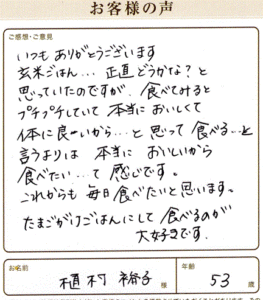 お客様の声
ご感想・ご意見
いつも ありがとうございます
玄米ごはん… 正直 どうかな?と
思っていたのですが、食べてみると
プチプチしていて 本当に おいしくて
体に良ーいから…と 思って 食べる…と
言うよりは 本当に おいしいから
食べたい…て 感じです。
これからも 毎日 食べたいと思います。
たまごかけごはんにして 食べるのが
大好きです。
お名前 植村 裕子 様 年齢 53 歳